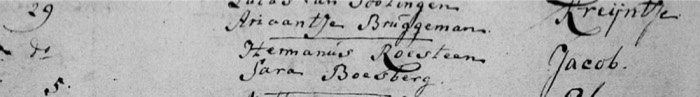 29 Ariaantje Bruggeman. Kreijntje
do Hermanus Roesteen Jacob.
Sara Boesberg.
5.